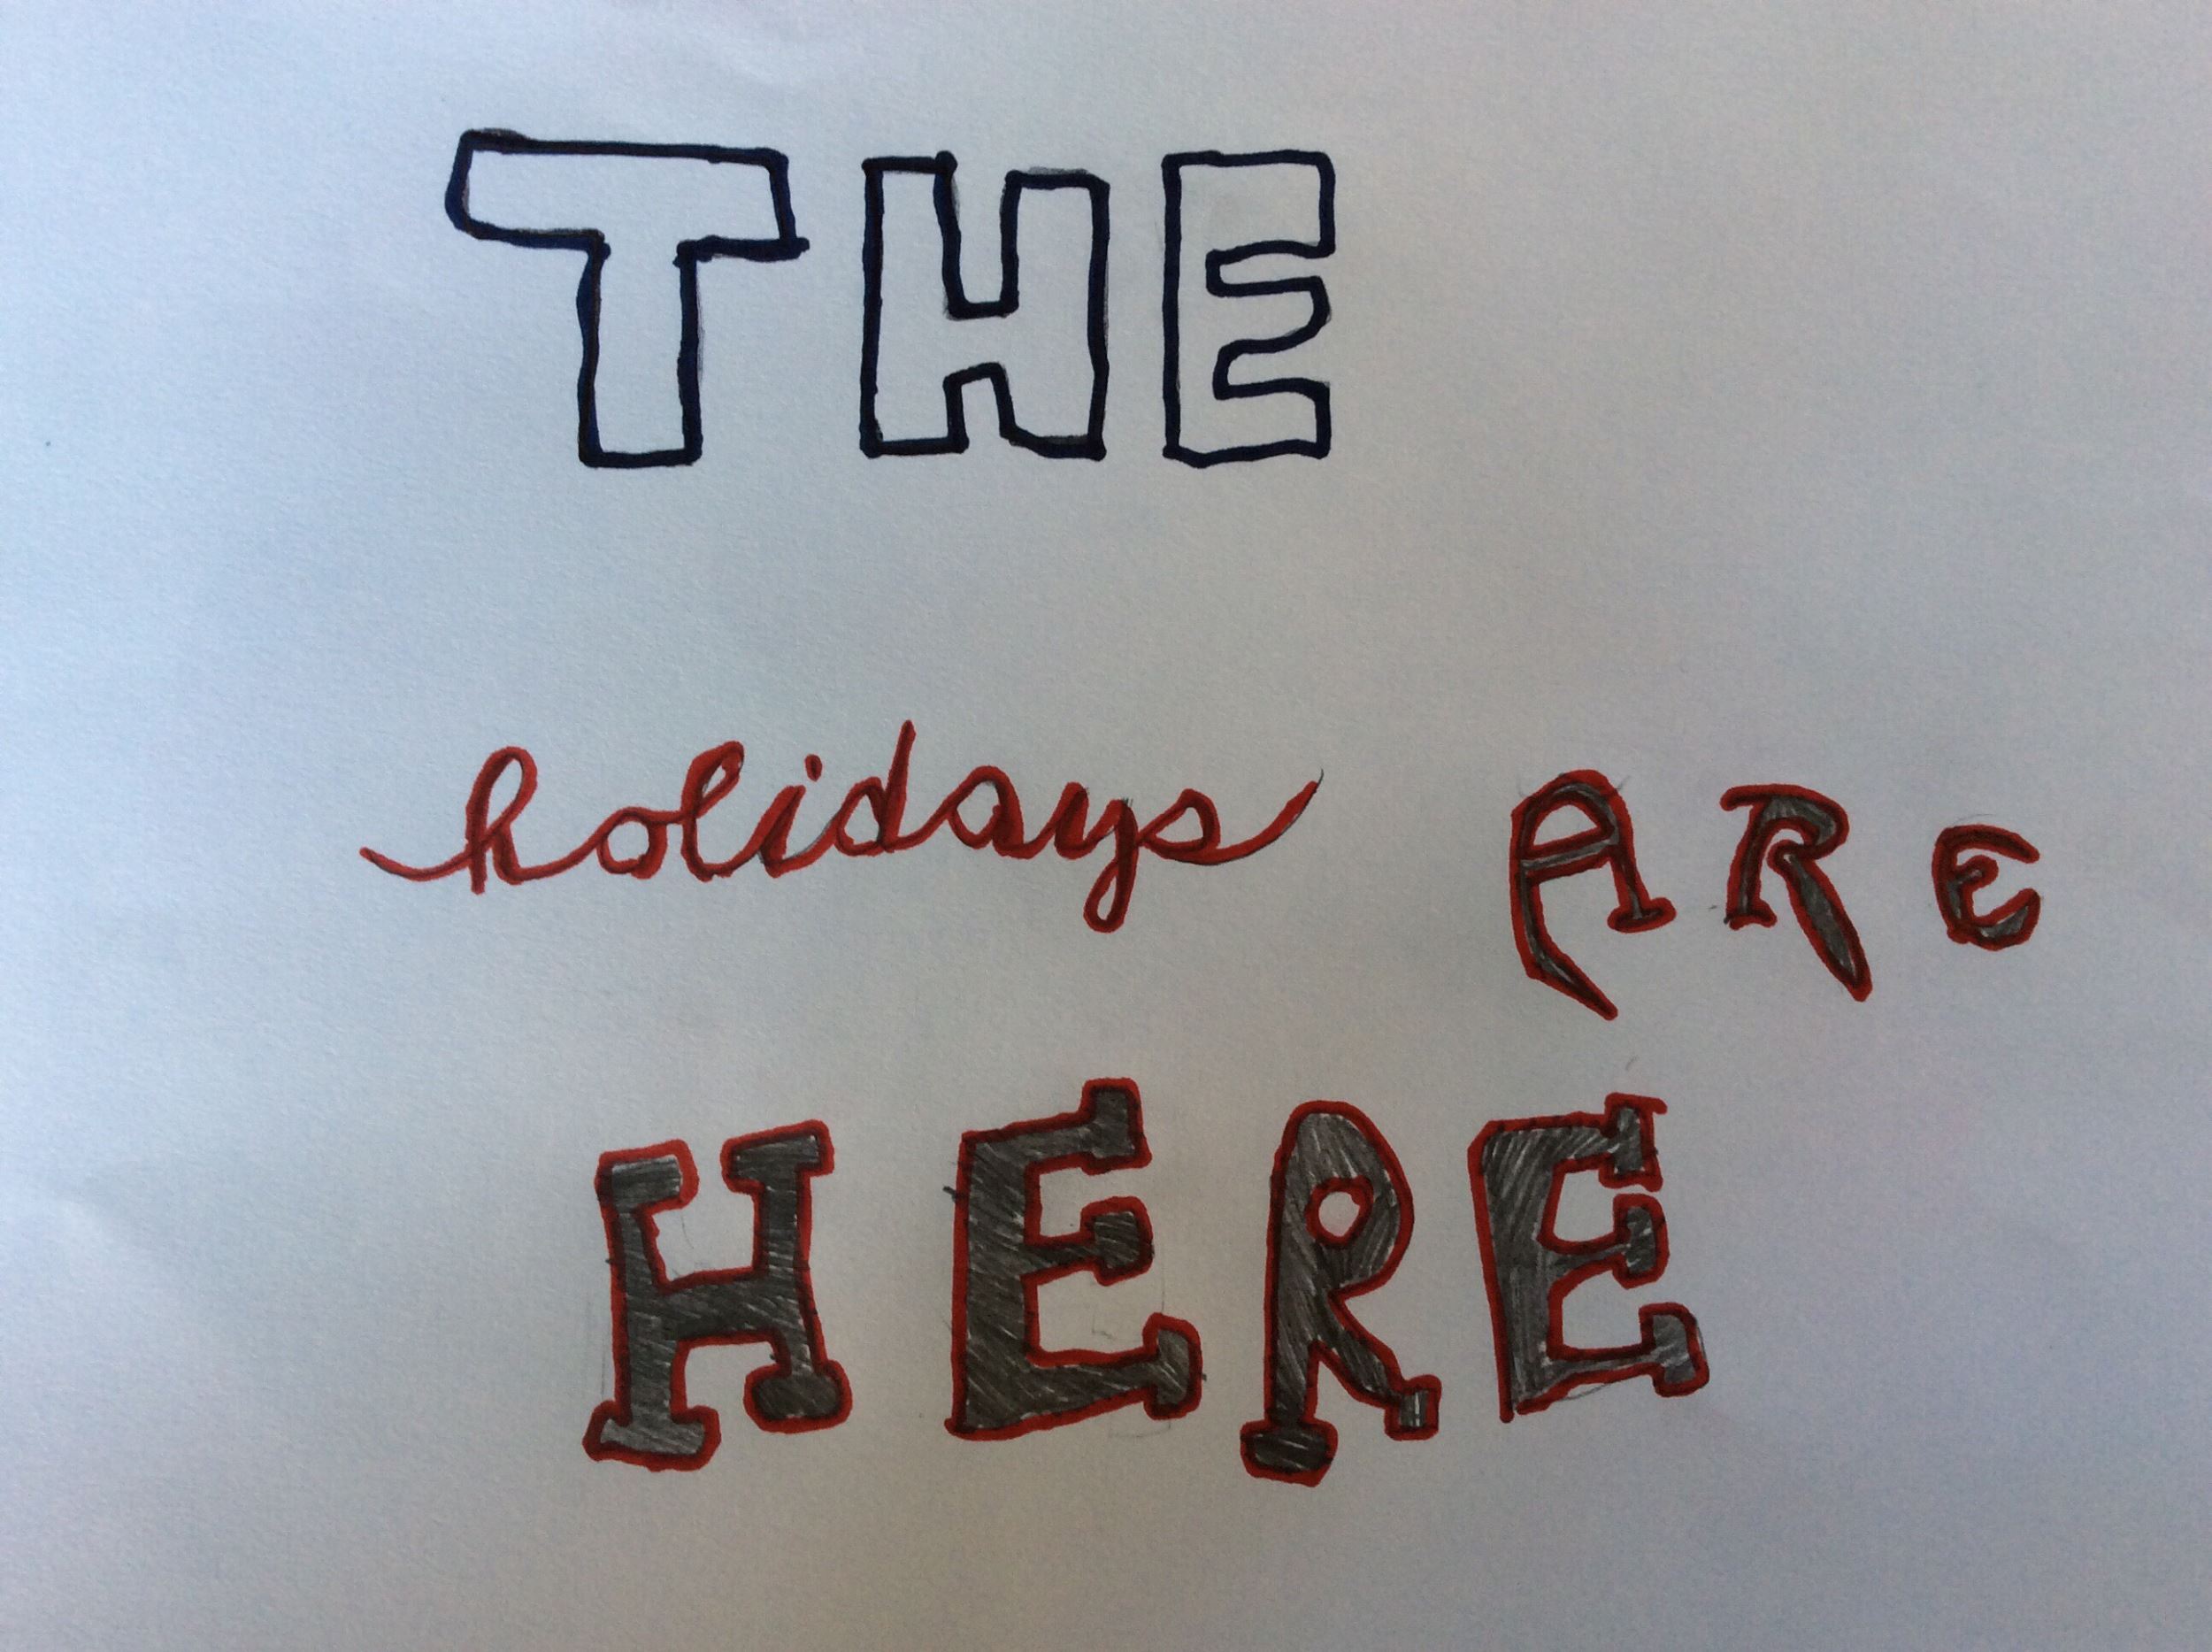 THE
holidays ARE
HERE